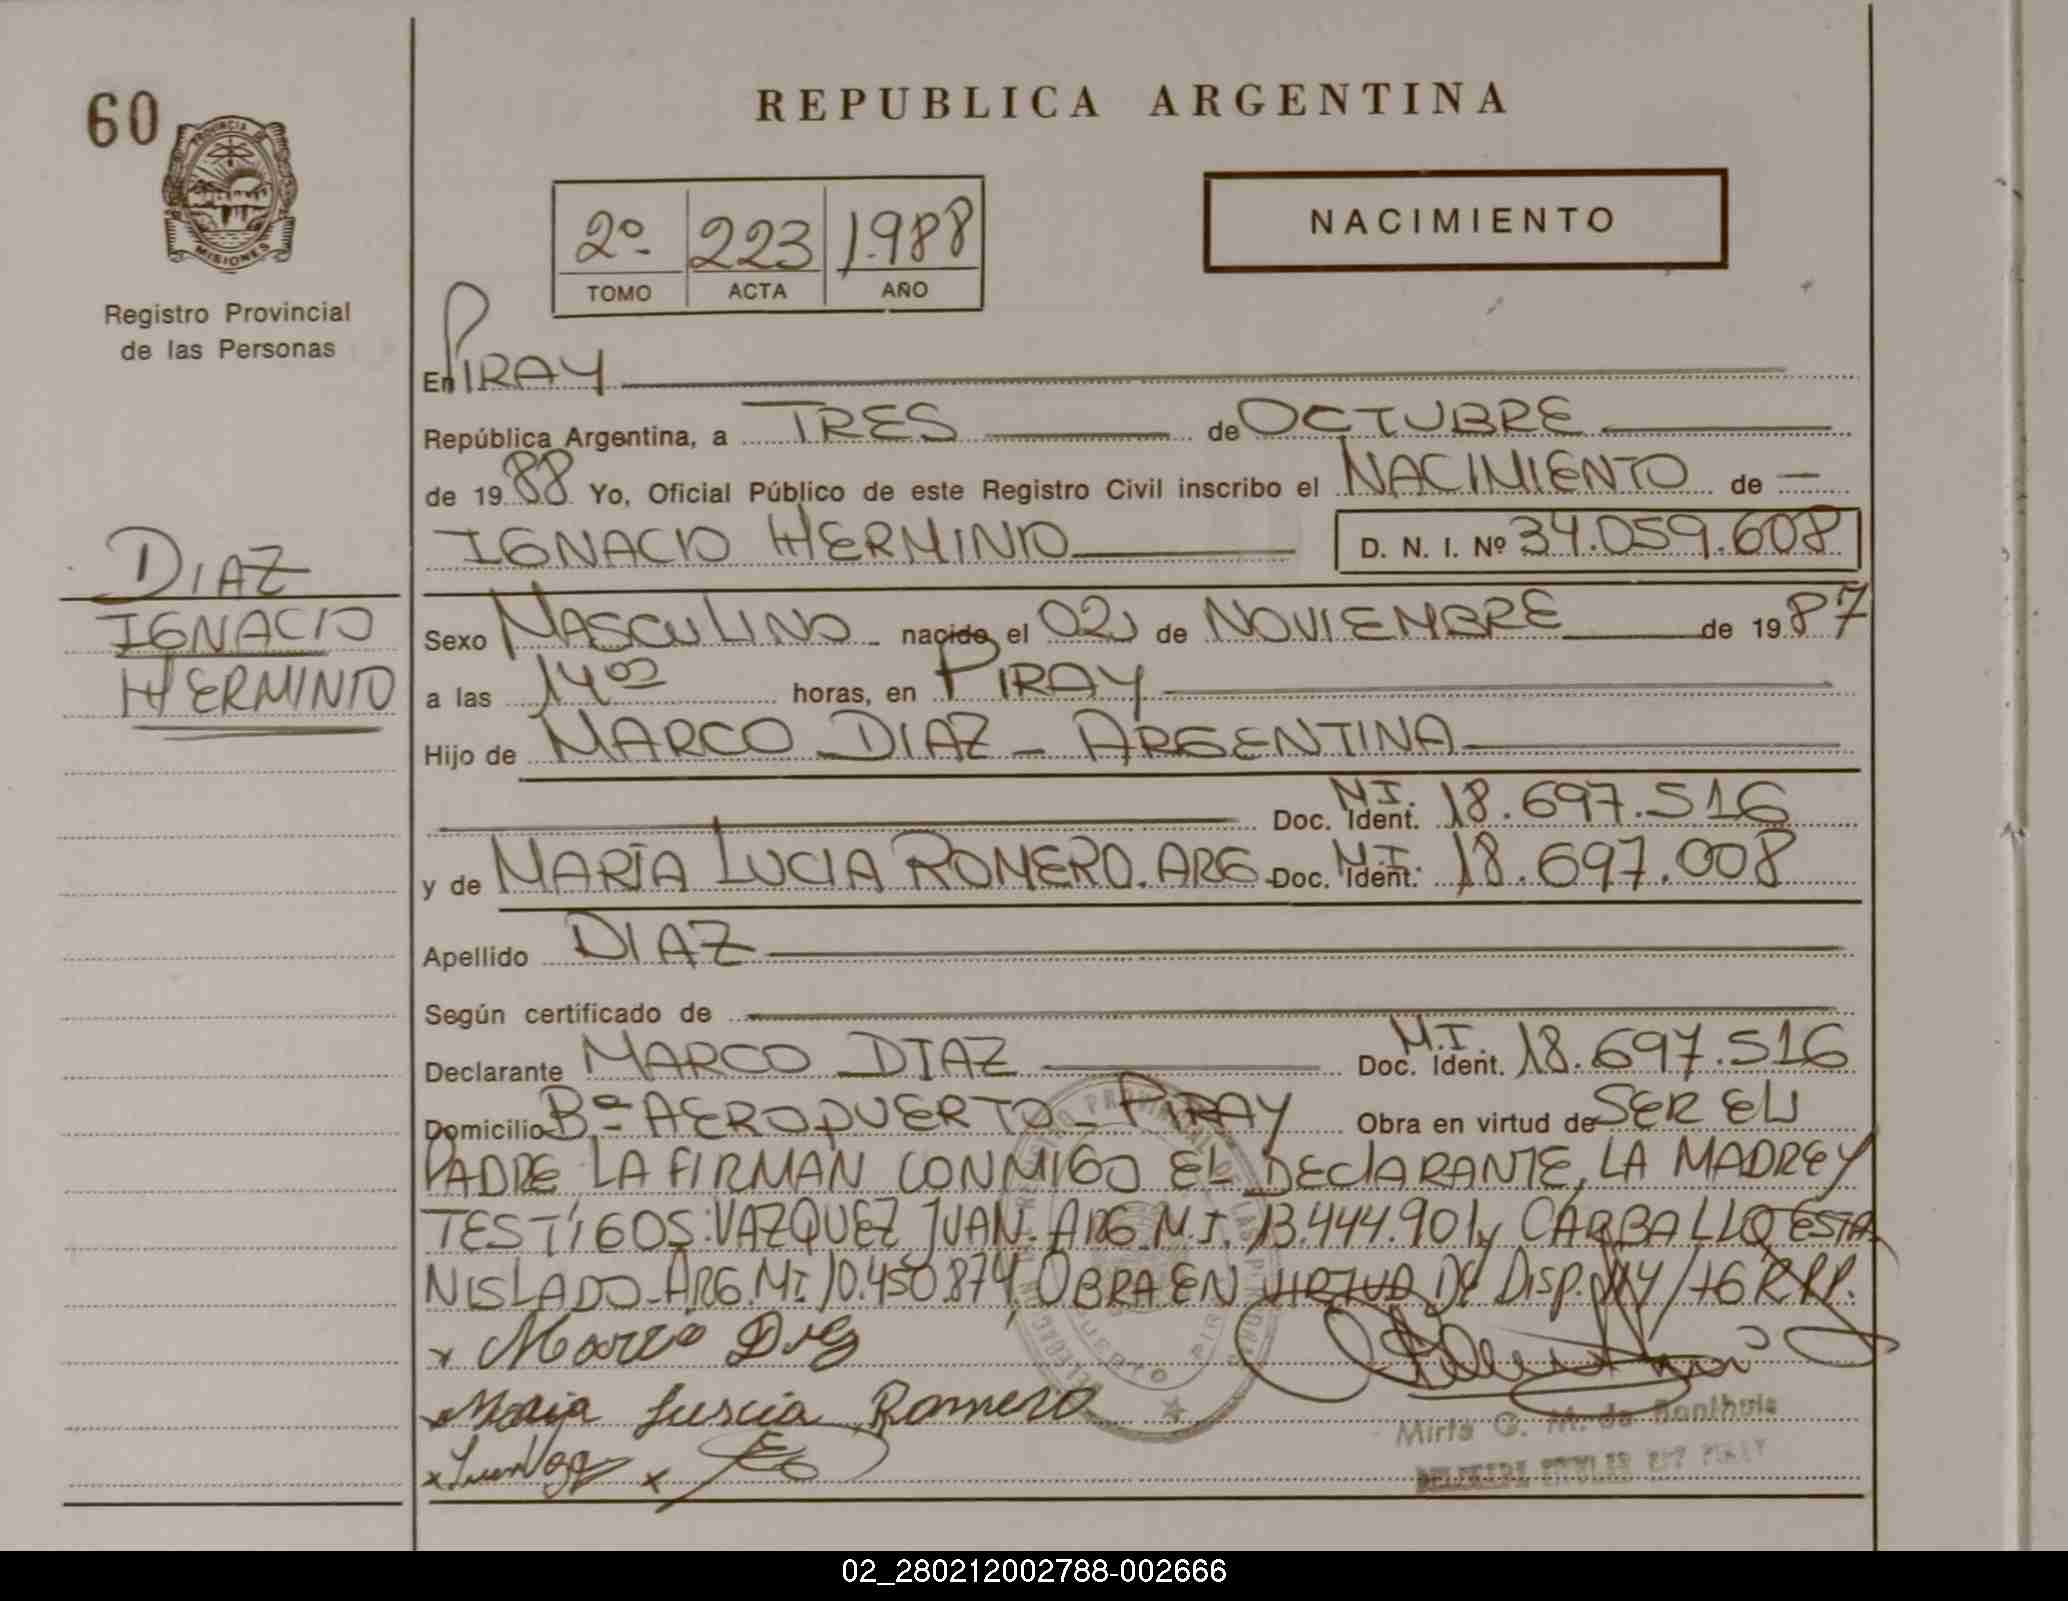 60
PROVINCIA DE
MISIONES
Registro Provincial
de las Personas
DIAZ
IGNACIO
HERMINIO
REPUBLICA ARGENTINA
2º 223 1.988
TOMO ACTA AÑO
NACIMIENTO
En PIRAY
República Argentina, a TRES de OCTUBRE
de 1988 Yo, Oficial Público de este Registro Civil inscribo el NACIMIENTO de —
IGNACIO HERMINIO D. N. I. Nº 34.059.608
Sexo MASCULINO nacido el 02 de NOVIEMBRE de 1987
a las 14 00 horas, en PIRAY
Hijo de MARCO DIAZ - ARGENTINA
Doc. Ident. M.I. 18.697.516
y de MARÍA LUCIA ROMERO. ARG. Doc. Ident. M.I. 18.697.008
Apellido DIAZ
Según certificado de
Declarante MARCO DIAZ Doc. Ident. M.I. 18.697.516
Domicilio Bº AEROPUERTO - PIRAY Obra en virtud de SER EL
PADRE LA FIRMAN CONMIGO EL DECLARANTE, LA MADRE Y
TESTIGOS: VAZQUEZ JUAN. ARG. M.I. 13.444.901 y CARBALLO ESTA
NISLADO - ARG. M.I. 10.450.874, OBRA EN VIRTUD DE DISP. /76 RPP.
x Marco Diaz
x Maria Luscia Romero
x Juan Vaz x
Mirta G. M. de Bonthuis
DELEGADA TITULAR RPP PIRAY
02_280212002788-002666